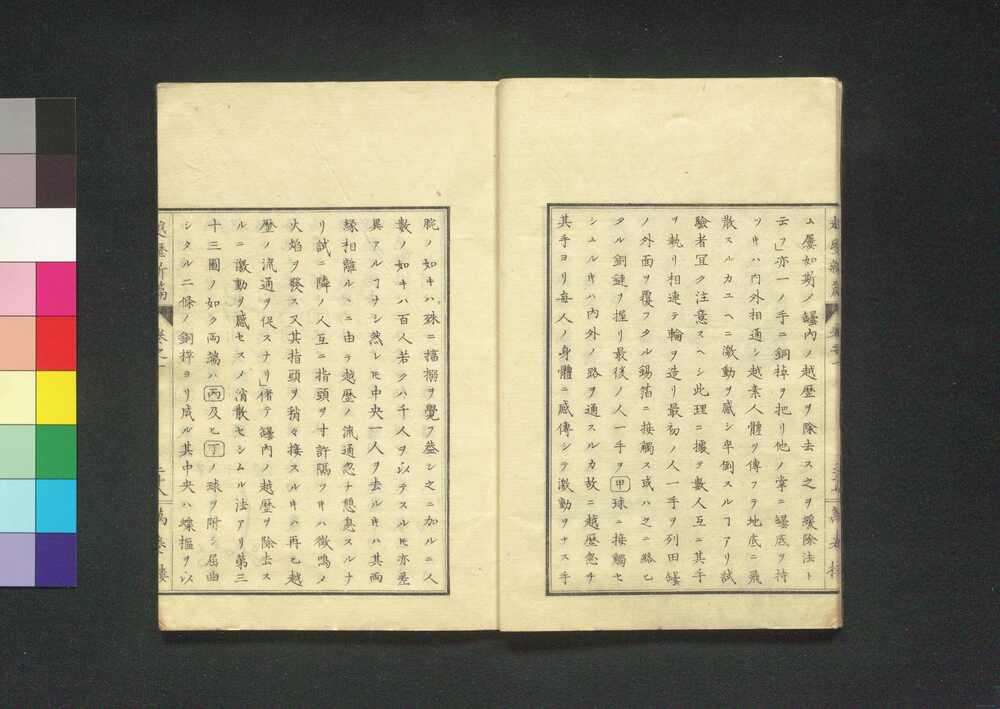 ユ屢如斯ノ罎内ノ越歴ヲ除去ス之ヲ緩除法ト
云フ」亦一ノ手ニ銅棹ヲ把リ他ノ掌ニ罎底ヲ持
ツキハ内外相通シ越素人體ヲ傳フテ地底ニ飛
散スルカユヘニ激動ヲ感シ卒倒スルヿアリ試
驗者冝ク注意スヘシ此理ニ據ヲ數人互ニ其手
ヲ執リ相連テ輪ヲ造リ最初ノ人一手ヲ列田罎
ノ外面ヲ覆フタル錫箔ニ接觸ス或ハ之ニ絡ヒ
タル銅鏈ヲ握リ最後ノ人一手ヲ甲球ニ接觸セ
シムルキハ内外ノ路ヲ通スルカ故ニ越歴忽チ
其手ヨリ毎人ノ身體ニ感傳シテ激動ヲナス手
腕ノ如キハ殊ニ搐搦ヲ覺フ益シ之ニ加ルニ人
數ノ如キハ百人若クハ千人ヲ以テスルモ亦差
異アルヿナシ然レモ中央一人ヲ去ルキハ其両
縁相離ルヽニ由テ越歴ノ流通忽ナ憩息スルナ
リ試ニ隣ノ人互ニ指頭ヲ寸許隔ツキハ微鳴ノ
火焰ヲ發ス又其指頭ヲ稍々接スルキハ再ヒ越
歴ノ流通ヲ促スナリ」偖テ罎内ノ越歴ヲ除去ス
ルニ激動ヲ感セスメ消散セシムル法アリ第三
十三圖ノ如ク両端ハ丙及ヒ丁ノ球ヲ附シ屈曲
シタル二條ノ銅桿ヨリ成ル其中央ハ蝶樞ヲ以
越歴新篇 卷之一